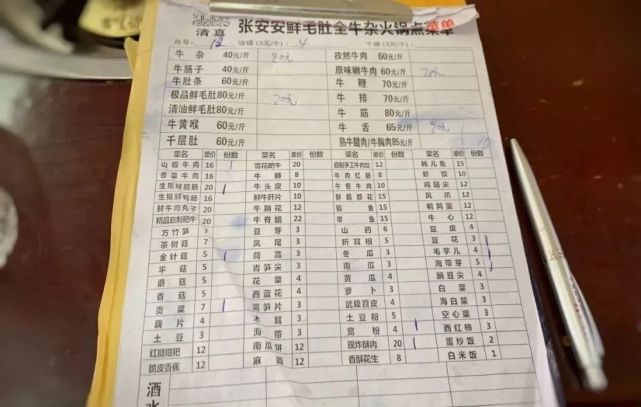 清真 张安安鲜毛肚全牛杂火锅点菜单 菜单
台号: 油碟(5元/个): 4 干碟(3元/个):
牛杂 40元/斤 孜然牛肉 60元/斤
牛肠子 40元/斤 原味嫩牛肉 60元/斤
牛肚条 60元/斤 牛鞭 70元/斤
极品鲜毛肚 80元/斤 牛排 70元/斤
清油鲜毛肚 80元/斤 牛筋 80元/斤
牛黄喉 60元/斤 牛舌 65元/斤
千层肚 60元/斤 熟牛腱肉/牛胸肉 85元/斤
菜名 单价 份数 菜名 单价 份数 菜名 单价 份数 菜名 单价 份数
山椒牛肉 16 雪花肥牛 20 12 15
香菜牛肉 16 牛 8 牛肉红肠 8 虾饺 10
生抠鲜鹅肠 20 牛头皮 10 牛餐牛肉 10 鸡翅尖 12
生抠鲜鸭肠 16 鲜牛肝片 10 鲜鹅郡花 15 凤爪 12
鲜牛肉丸子 20 牛脑花 12 鱼 15 鹌鹑蛋 12
精品自制肥牛 20 牛脊髓 22 带鱼 15 牛心 12
方竹笋 7 豆芽 3 山药 6 豆皮 4
茶树菇 7 凤尾 3 折耳根 5 豆花 3
金针菇 5 茼蒿 3 冬瓜 3 毛芋儿 4
平菇 5 青笋尖 3 南瓜 3 海带芽 5
蘑菇 5 花菜 4 黄瓜 4 豌豆尖 4
香菇 5 西蓝花 4 萝卜 3 白菜 3
贡菜 7 莴笋片 3 武隆苕皮 4 海白菜 3
藕片 4 木耳 3 土豆粉 5 空心菜 3
土豆 3 海带 3 宽粉 4 西红柿 3
红糖糍粑 12 南瓜饼 12 现炸酥肉 20 蛋炒饭 2
脆皮香蕉 12 麻圆 12 香酥花生 8 白米饭 1
酒水